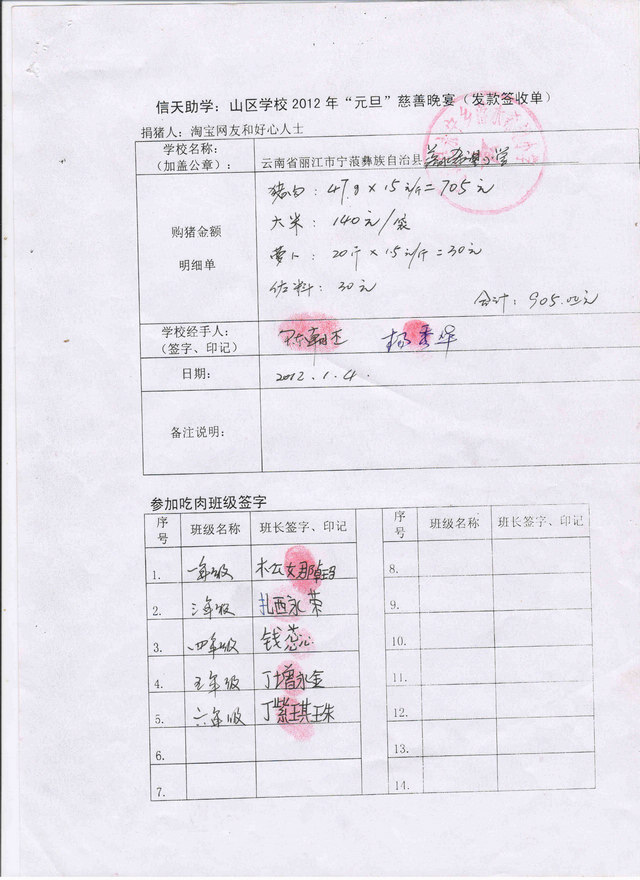 信天助学：山区学校2012年“元旦”慈善晚宴（发款签收单）
捐猪人：淘宝网友和好心人士
学校名称：
（加盖公章）：
云南省丽江市宁蒗彝族自治县 小学
购猪金额
明细单
猪肉：47 × 15元/斤=705元
大米：140元/袋
萝卜：20斤×15元/斤=30元
佐料：30元
合计：905.00元
学校经手人：
（签字、印记）
陈朝 杨秀华
日期：
2012.1.4.
备注说明：
参加吃肉班级签字
序号 班级名称 班长签字、印记 序号 班级名称 班长签字、印记
1. 一年级 8.
2. 三年级 扎西永荣 9.
3. 四年级 钱蕊 10.
4. 五年级 丁增永金 11.
5. 六年级 丁紫琪珠 12.
6. 13.
7. 14.